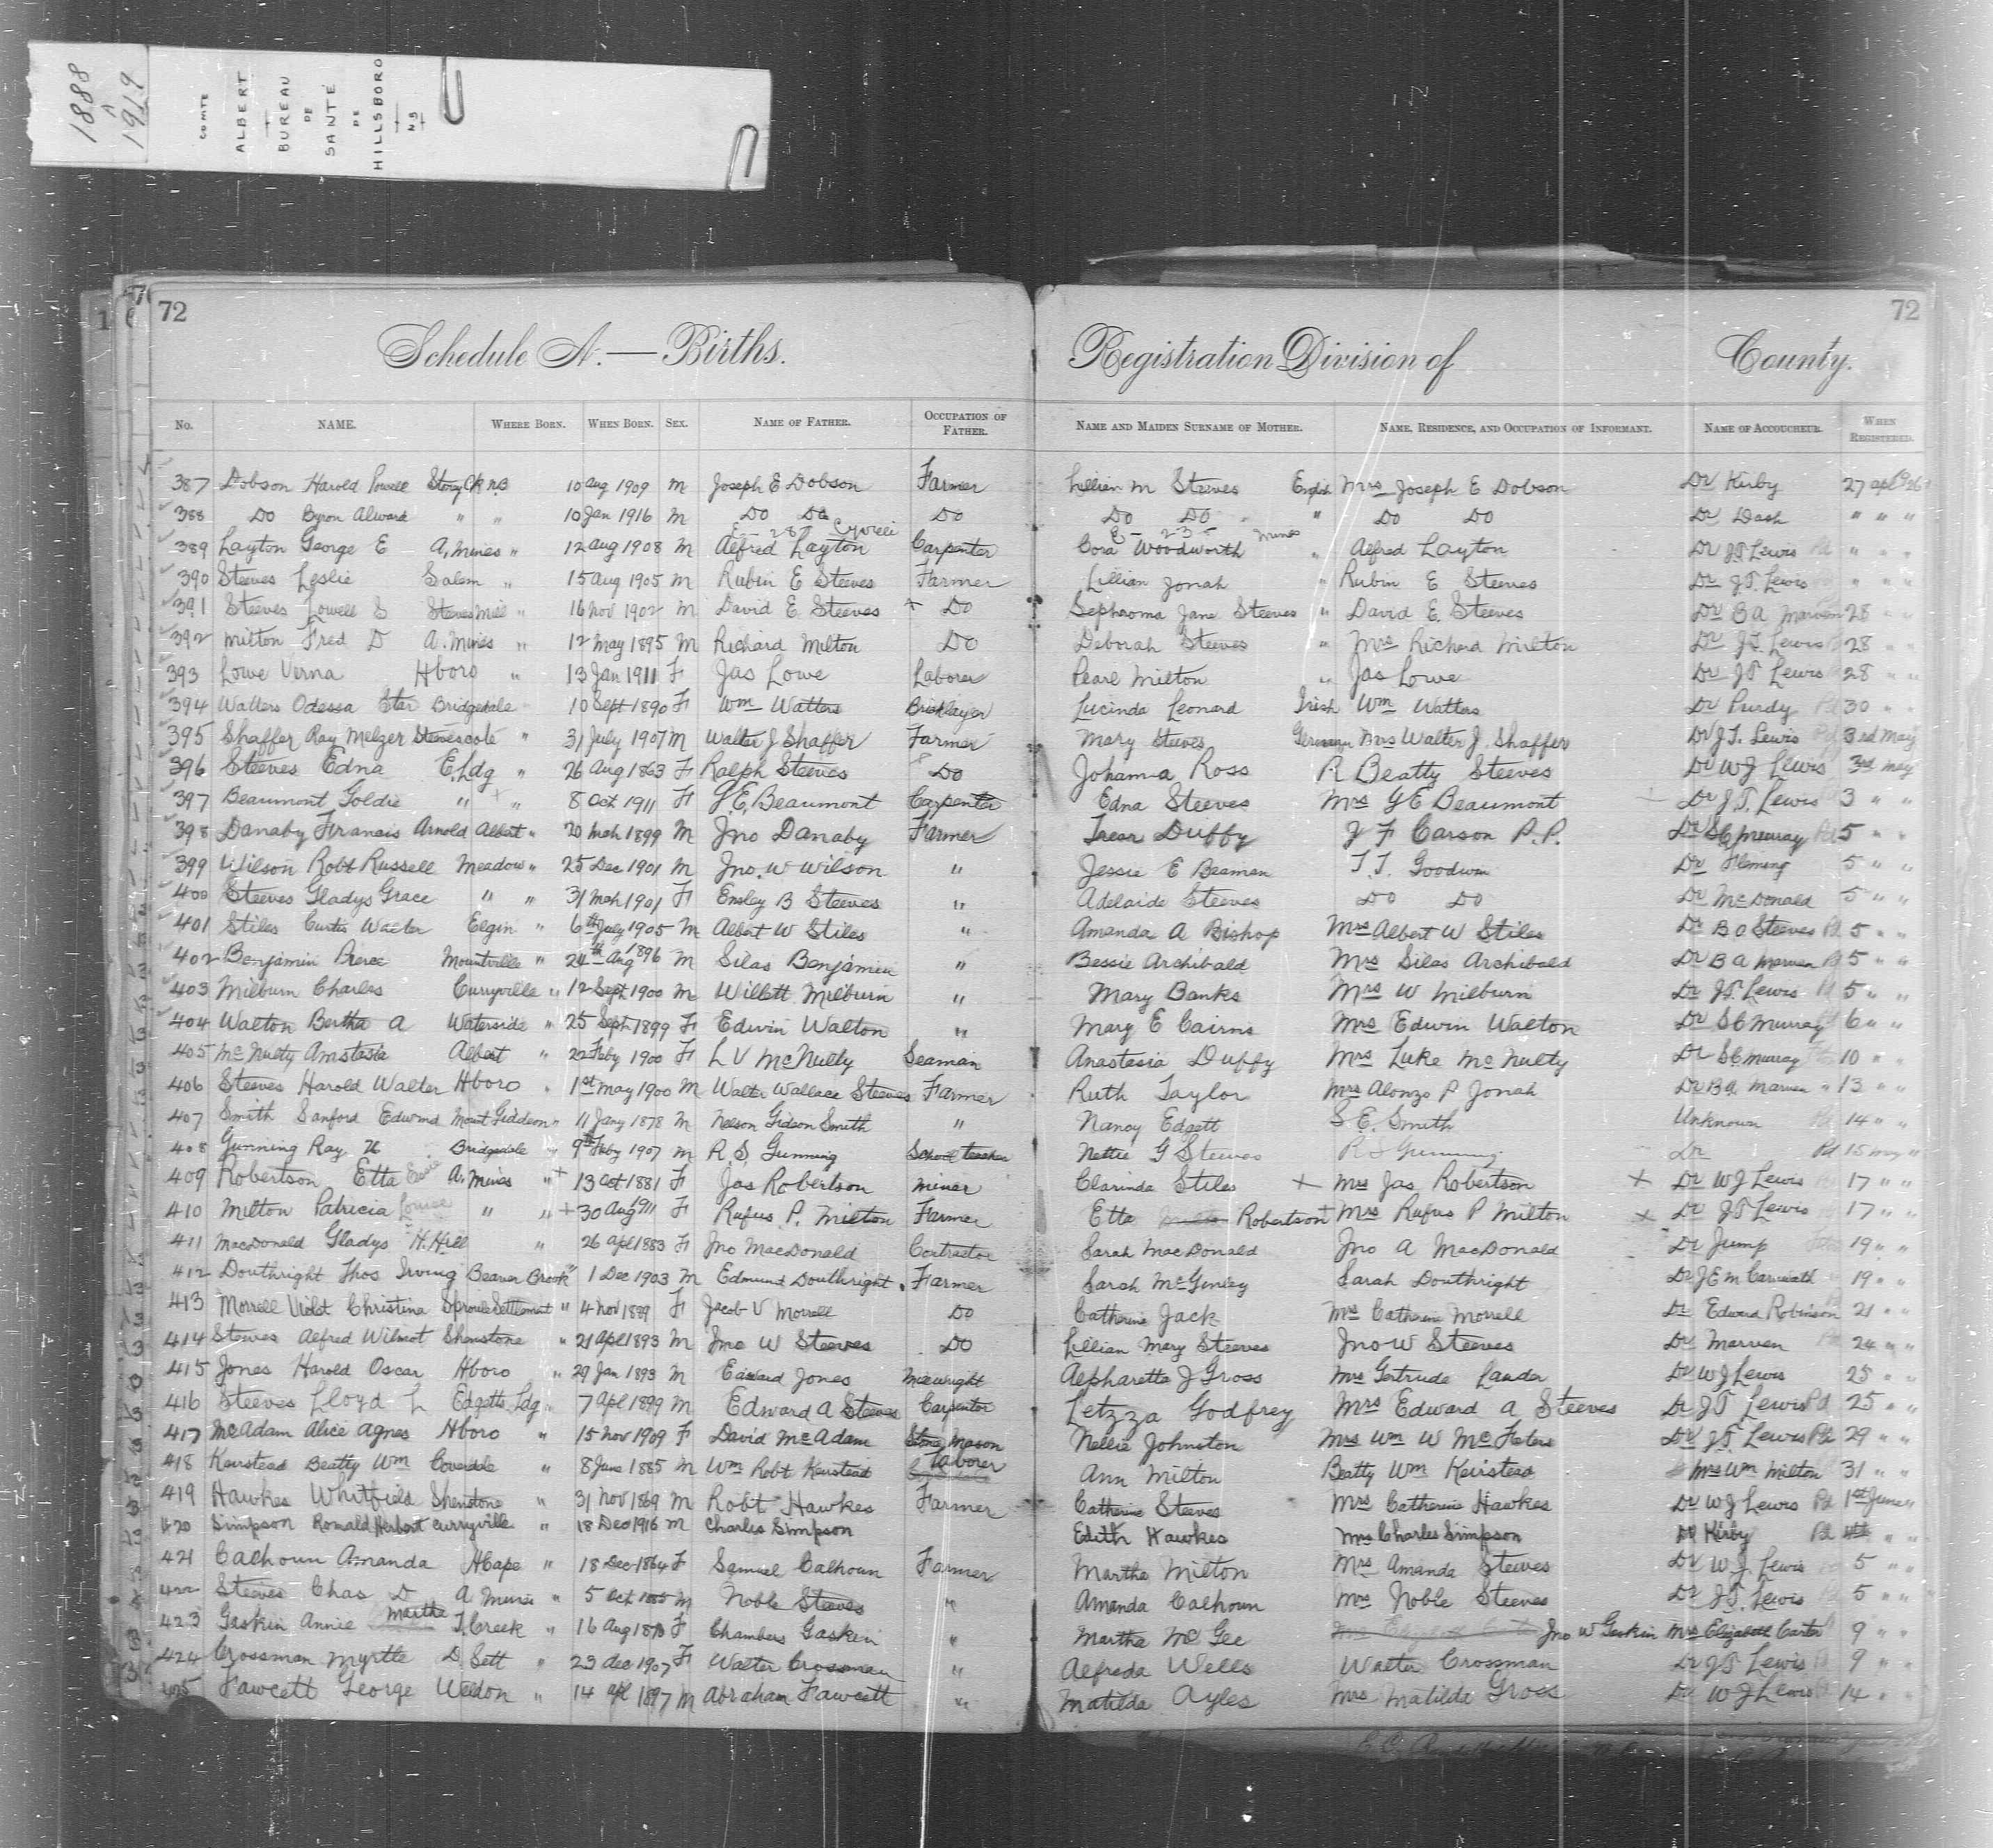 1888
A
1919
COMTE
ALBERT
BUREAU
DE
SANTÉ
DE
HILLSBORO
NB
72
72
Schedule A.—Births. Registration Division of County.
No. NAME. WHERE BORN. WHEN BORN. SEX. NAME OF FATHER. OCCUPATION OF FATHER. NAME AND MAIDEN SURNAME OF MOTHER. NAME, RESIDENCE, AND OCCUPATION OF INFORMANT. NAME OF ACCOUCHEUR. WHEN REGISTERED.
387 Dobson Harold Powell Stony Ck NB 10 Aug 1909 M Joseph E Dobson Farmer Lillian M Steeves English Mrs Joseph E Dobson Dr Kirby 27 apl
388 Do Byron Alward " " 10 Jan 1916 M Do Do Do Do Do " Do Do Dr Dash " " "
389 Layton George E A. Mines " 12 Aug 1908 M Alfred Layton Carpenter Cora Woodworth " Alfred Layton Dr J.T. Lewis " " "
390 Steeves Leslie Salem " 15 Aug 1905 M Rubin E Steeves Farmer Lillian Jonah " Rubin E Steeves Dr J.T. Lewis " " "
391 Steeves Lowell S Steeves Mill " 16 Nov 1902 M David E. Steeves + Do Sephroma Jane Steeves " David E. Steeves Dr B A Marven 28 " "
392 Milton Fred D A. Mines " 12 May 1895 M Richard Milton Do Deborah Steeves " Mrs Richard Milton Dr J.T. Lewis 28 " "
393 Lowe Verna Hboro " 13 Jan 1911 F Jas Lowe Laborer Pearl Milton " Jas Lowe Dr J T Lewis 28 " "
394 Watters Odessa Star Bridgedale 10 Sept 1890 F Wm Watters Bricklayer Lucinda Leonard Irish Wm Watters Dr Purdy 30 " "
395 Shaffer Ray Melzer Stevescote " 31 July 1907 M Walter J Shaffer Farmer Mary Steeves German Mrs Walter J. Shaffer Dr J T. Lewis 3rd May
396 Steeves Edna E. Ldg " 26 Aug 1863 F Ralph Steeves Do Johanna Ross R Beatty Steeves Dr W J Lewis 3rd May
397 Beaumont Goldie " " 8 Oct 1911 F G.E. Beaumont Carpenter Edna Steeves Mrs G E Beaumont Dr J.T. Lewis 3 " "
398 Danaby Francis Arnold Albert " 20 Mch 1899 M Jno Danaby Farmer Duffy J F Carson P.P. Dr S C Murray Pd 5 " "
399 Wilson Robt Russell Meadow " 25 Dec 1901 M Jno. W Wilson " Jessie E Beaman T.T. Goodwin Dr Fleming 5 " "
400 Steeves Gladys Grace " " 31 Mch 1901 F Ensley B Steeves " Adelaide Steeves Do Do Dr McDonald 5 " "
401 Stiles Curtis Walter Elgin " 6th July 1905 M Albert W Stiles " Amanda A Bishop Mrs Albert W Stiles Dr B O Steeves Pd 5 " "
402 Benjamin Pierce Mountville " 24th Aug 1896 M Silas Benjamin " Bessie Archibald Mrs Silas Archibald Dr B A Marven Pd 5 " "
403 Milburn Charles Curryville " 12 Sept 1900 M Willett Milburn " Mary Banks Mrs W Milburn Dr J.T. Lewis Pd 5 " "
404 Walton Bertha A Waterside " 25 Sept 1899 F Edwin Walton " Mary E Cairns Mrs Edwin Walton Dr S C Murray 6 " "
405 McNulty Amstasia Albert " 22 Feby 1900 F L V McNulty Seaman Anastasia Duffy Mrs Luke McNulty Dr S C Murray 10 " "
406 Steeves Harold Walter Hboro " 1st May 1900 M Walter Wallace Steeves Farmer Ruth Taylor Mrs Alonzo P Jonah Dr B A. Marven " 13 " "
407 Smith Sanford Edward Mount Giddeon " 11 Jany 1878 M Nelson Gideon Smith " Nancy Edgett S. E. Smith Unknown 14 " "
408 Gunning Ray H Bridgedale " 9th Feby 1907 M R. S. Gunning School teacher Nettie G Steeves R S Gunning Dr Pd 15 may "
409 Robertson Etta A. Mines " + 13 Oct 1881 F Jas Robertson Miner Clarinda Stiles + Mrs Jas Robertson + Dr W J Lewis 17 " "
410 Milton Patricia Louise " " + 30 Aug 1911 F Rufus P. Milton Farmer Etta Robertson + Mrs Rufus P Milton + Dr J T Lewis 17 " "
411 MacDonald Gladys H. Hill " 26 apl 1883 F Jno MacDonald Contractor Sarah MacDonald Jno A MacDonald Dr Jump 19 " "
412 Douthright Thos Irving Beaver Brook " 1 Dec 1903 M Edmund Douthright. Farmer Sarah McGinley Sarah Douthright Dr J E M Carnwath 19 " "
413 Morrell Violet Christina Sproule Settlement " 4 Nov 1889 F Jacob V Morrell Do Catherine Jack Mrs Catherine Morrell Dr Edward Robinson 21 " "
414 Steeves Alfred Wilmot Shenstone " 21 apl 1893 M Jno W Steeves Do Lillian Mary Steeves Jno W Steeves Dr Marven 24 " "
415 Jones Harold Oscar Hboro " 29 Jan 1893 M Edward Jones Alpharetta J Gross Mrs Gertrude Lander Dr W J Lewis 25 " "
416 Steeves Lloyd L Edgetts Ldg " 7 apl 1899 M Edward A Steeves Carpenter Letzza Godfrey Mrs Edward A Steeves Dr J T Lewis Pd 25 " "
417 McAdam Alice Agnes Hboro " 15 Nov 1909 F David McAdam Stone Mason Nellie Johnston Mrs Wm W McFeters Dr J.T. Lewis Pd 29 " "
418 Keirstead Beatty Wm Coverdale " 8 June 1885 M Wm Robt Keirstead Laborer Ann Milton Beatty Wm Keirstead Mrs Wm Milton 31 " "
419 Hawkes Whitfield Shenstone " 31 Nov 1869 M Robt Hawkes Farmer Catherine Steeves Mrs Catherine Hawkes Dr W J Lewis Pd 1st June "
420 Simpson Ronald Herbert Curryville " 18 Dec 1916 M Charles Simpson Edith Hawkes Mrs Charles Simpson Dr Kirby Pd 4th " "
421 Calhoun Amanda H Cape " 18 Dec 1864 F Samuel Calhoun Farmer Martha Milton Mrs Amanda Steeves Dr W. J. Lewis 5 " "
422 Steeves Chas D A Mines " 5 Oct 1885 M Noble Steeves " Amanda Calhoun Mrs Noble Steeves Dr J.T. Lewis 5 " "
423 Gaskin Annie Martha T. Creek " 16 Aug 1878 F Chambers Gaskin " Martha McGee Jno W Gaskin Mrs Elizabeth Carter 9 " "
424 Crossman Myrtle D. Sett " 23 Dec 1907 F Walter Crossman " Alfreda Wells Walter Crossman Dr J T Lewis 9 " "
425 Fawcett George Weldon " 14 apl 1897 M Abraham Fawcett " Matilda Ayles Mrs Matilda Gross Dr W J Lewis 14 " "